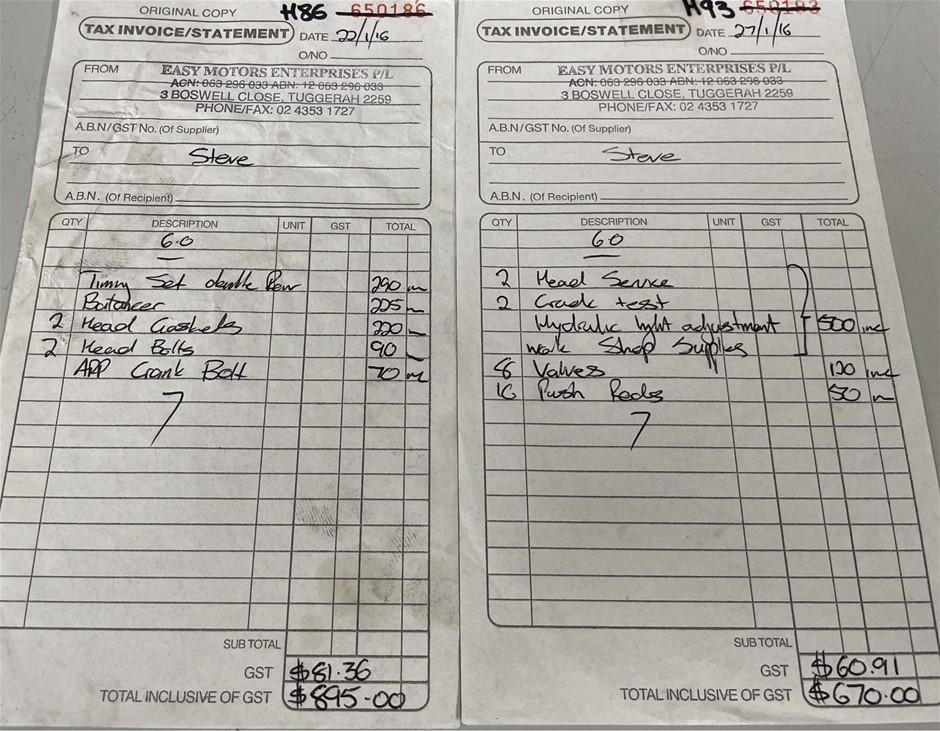 ORIGINAL COPY H86 650186
TAX INVOICE/STATEMENT DATE 22/1/16
O/NO
FROM EASY MOTORS ENTERPRISES P/L
ACN: 063 296 033 ABN: 12 063 296 033
3 BOSWELL CLOSE, TUGGERAH 2259
PHONE/FAX: 02 4353 1727
A.B.N/GST No. (Of Supplier)
TO Steve
A.B.N. (Of Recipient)
QTY DESCRIPTION UNIT GST TOTAL
6.0
Timing Set double Row 290
Balancer 225
2 Head Gaskets 220
2 Head Bolts 90
ARP Crank Bolt 70
SUB TOTAL
GST $81.36
TOTAL INCLUSIVE OF GST $895.00
ORIGINAL COPY H93 650193
TAX INVOICE/STATEMENT DATE 27/1/16
O/NO
FROM EASY MOTORS ENTERPRISES P/L
ACN: 063 296 033 ABN: 12 063 296 033
3 BOSWELL CLOSE, TUGGERAH 2259
PHONE/FAX: 02 4353 1727
A.B.N/GST No. (Of Supplier)
TO Steve
A.B.N. (Of Recipient)
QTY DESCRIPTION UNIT GST TOTAL
6.0
2 Head Service
2 Crack test
Hydraulic adjustment 500 inc
Work Shop Supplies
8 Valves 120 inc
16 Push Rods 50
SUB TOTAL
GST $60.91
TOTAL INCLUSIVE OF GST $670.00